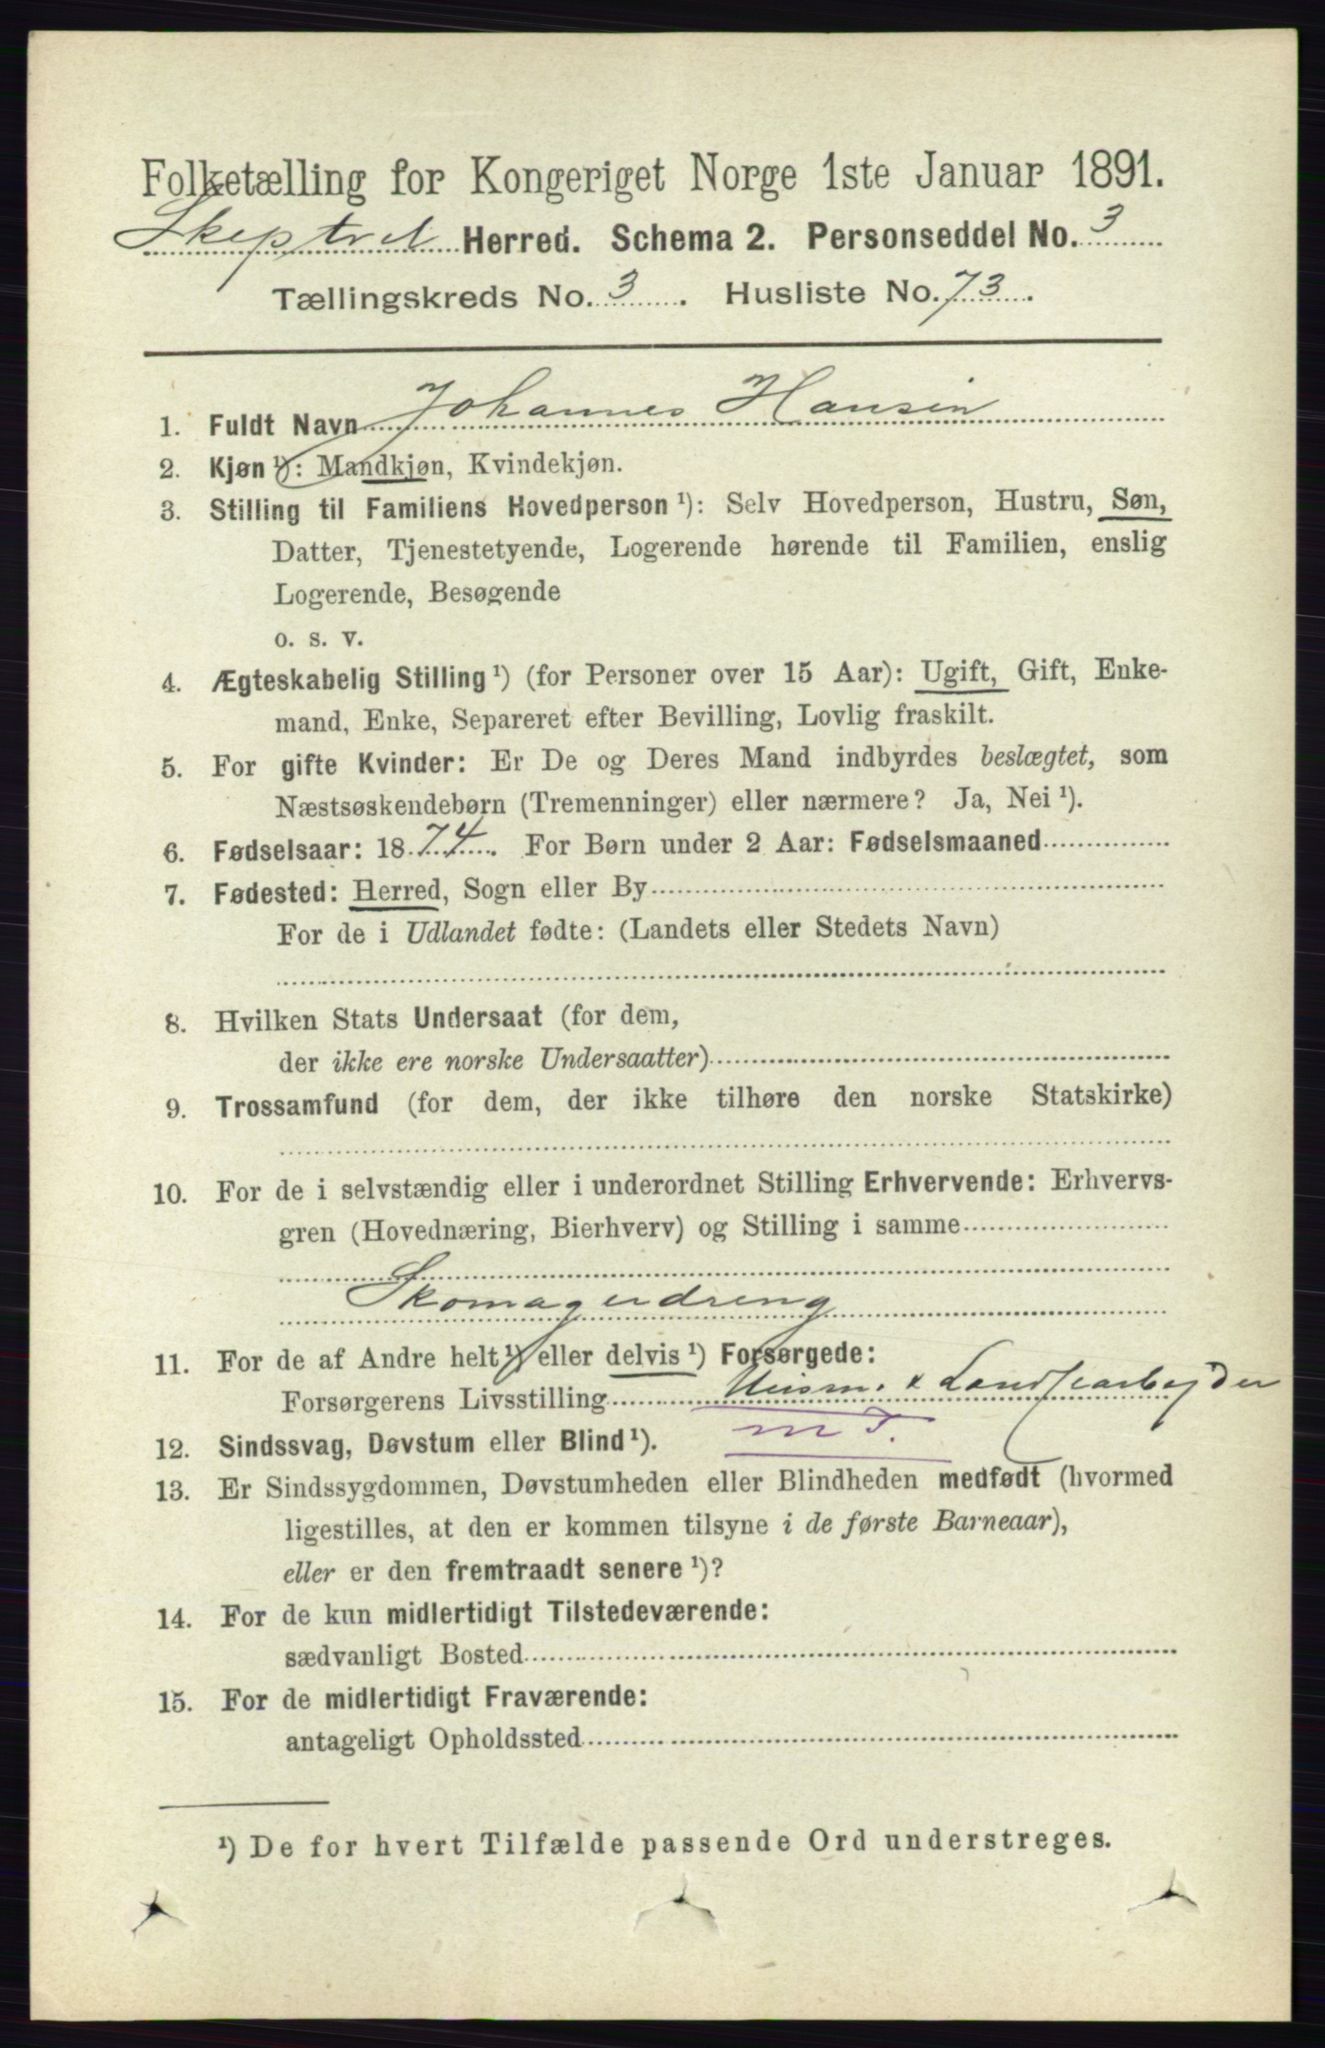 Folketælling for Kongeriget Norge 1ste Januar 1891.
Skeptvet Herred. Schema 2. Personseddel No. 3
Tællingskreds No. 3. Husliste No. 73.
1. Fuldt Navn Johannes Hansen
2. Kjøn ¹): Mandkjøn, Kvindekjøn.
3. Stilling til Familiens Hovedperson ¹): Selv Hovedperson, Hustru, Søn,
Datter, Tjenestetyende, Logerende hørende til Familien, enslig
Logerende, Besøgende
o. s. v.
4. Ægteskabelig Stilling ¹) (for Personer over 15 Aar): Ugift, Gift, Enke-
mand, Enke, Separeret efter Bevilling, Lovlig fraskilt.
5. For gifte Kvinder: Er De og Deres Mand indbyrdes beslægtet, som
Næstsøskendebørn (Tremenninger) eller nærmere? Ja, Nei ¹).
6. Fødselsaar: 1874. For Børn under 2 Aar: Fødselsmaaned
7. Fødested: Herred, Sogn eller By
For de i Udlandet fødte: (Landets eller Stedets Navn)
8. Hvilken Stats Undersaat (for dem,
der ikke ere norske Undersaatter)
9. Trossamfund (for dem, der ikke tilhøre den norske Statskirke)
10. For de i selvstændig eller i underordnet Stilling Erhvervende: Erhvervs-
gren (Hovednæring, Bierhverv) og Stilling i samme
Skomagerdreng
11. For de af Andre helt ¹) eller delvis ¹) Forsørgede:
Forsørgerens Livsstilling Husm. & Landearbeyder
12. Sindssvag, Døvstum eller Blind ¹). m J.
13. Er Sindssygdommen, Døvstumheden eller Blindheden medfødt (hvormed
ligestilles, at den er kommen tilsyne i de første Barneaar),
eller er den fremtraadt senere ¹)?
14. For de kun midlertidigt Tilstedeværende:
sædvanligt Bosted
15. For de midlertidigt Fraværende:
antageligt Opholdssted
¹) De for hvert Tilfælde passende Ord understreges.